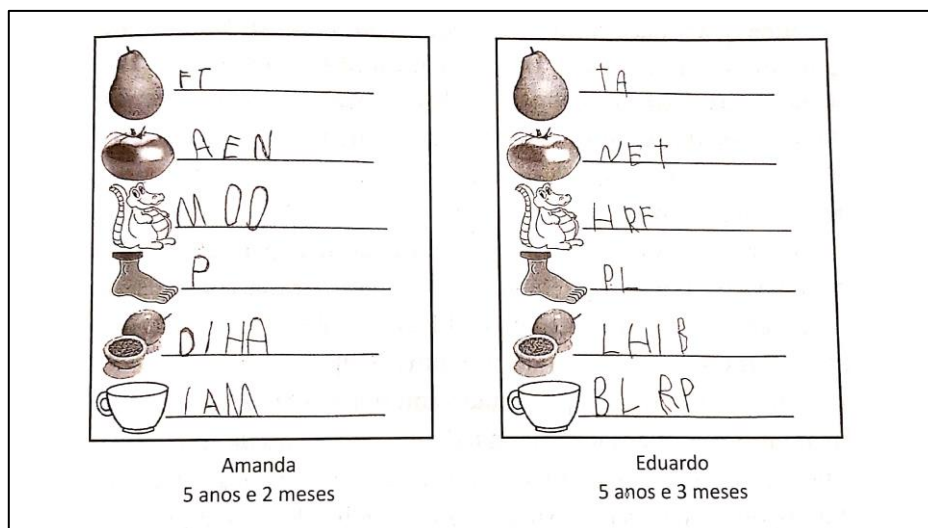 FT
AEN
MOO
P
DIHA
IAM
Amanda
5 anos e 2 meses
tA
NEt
HRF
PL
LHIB
BLRP
Eduardo
5 anos e 3 meses